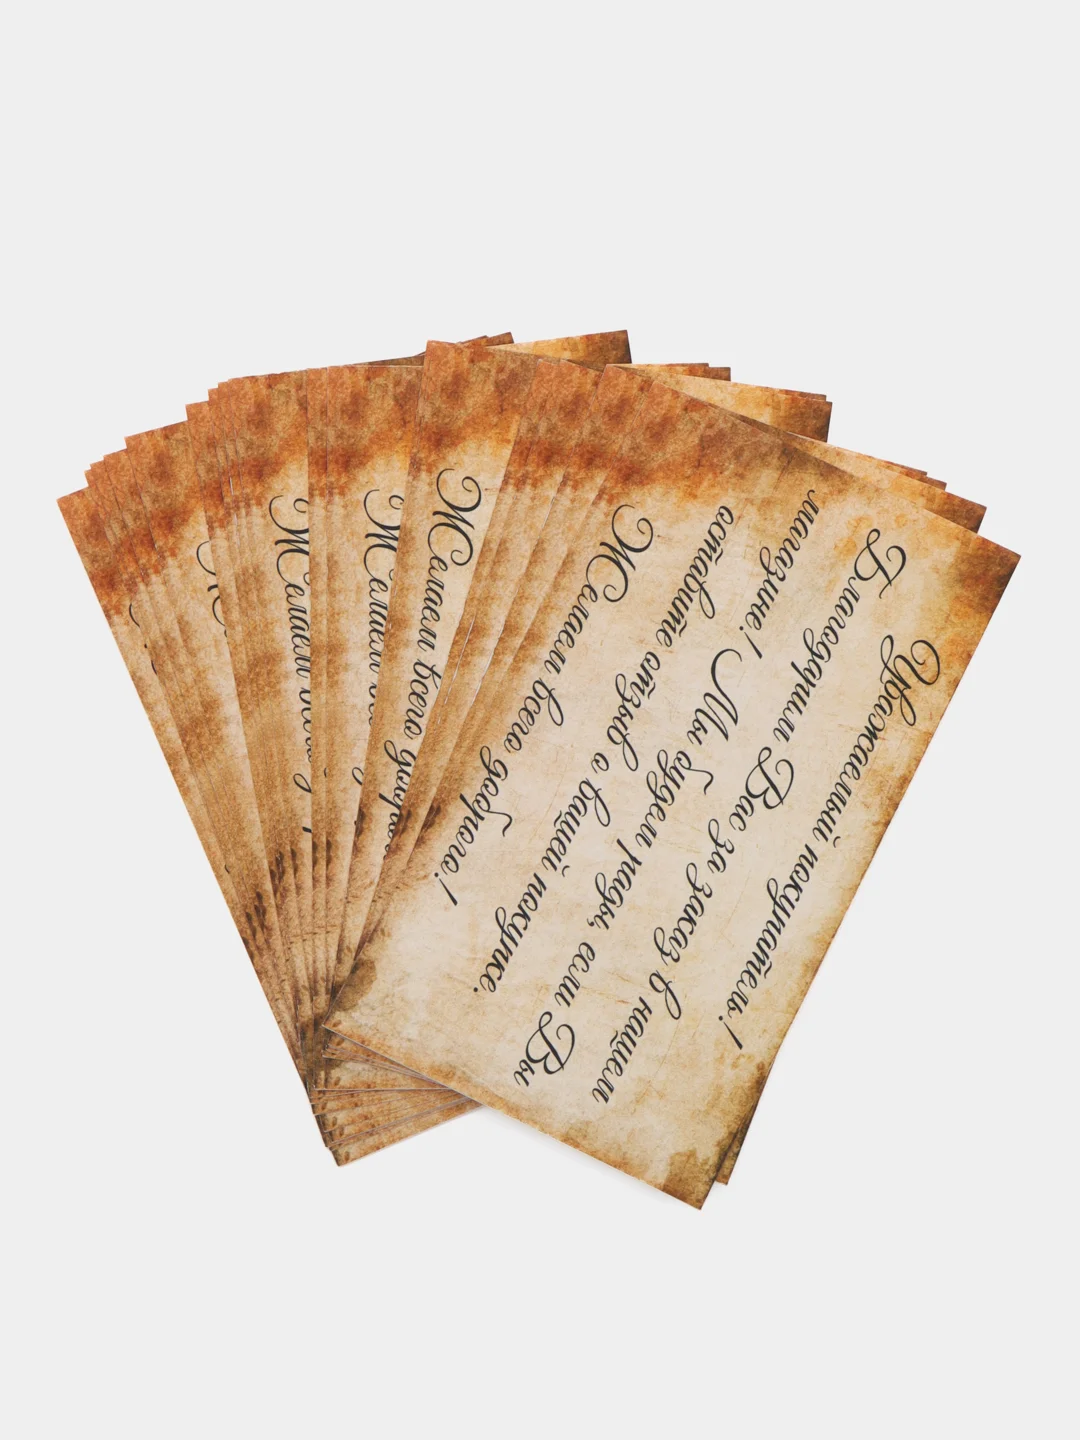 Уважаемый покупатель!
Благодарим Вас за заказ в нашем
магазине! Мы будем рады, если Вы
оставите отзыв о вашей покупке.
Желаем всего доброго!
Желаем всего
Желаем
Желаем